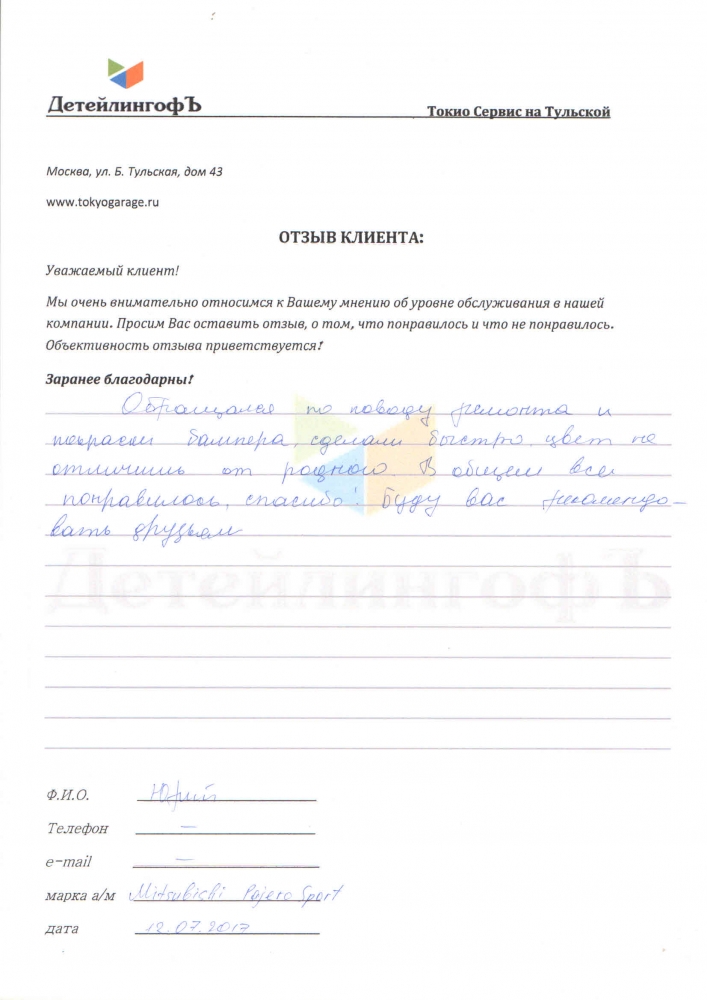 ДетейлингофЪ
Токио Сервис на Тульской
Москва, ул. Б. Тульская, дом 43
www.tokyogarage.ru
ОТЗЫВ КЛИЕНТА:
Уважаемый клиент!
Мы очень внимательно относимся к Вашему мнению об уровне обслуживания в нашей
компании. Просим Вас оставить отзыв, о том, что понравилось и что не понравилось.
Объективность отзыва приветствуется!
Заранее благодарны!
Обращался по поводу ремонта и
покраски бампера, сделали быстро, цвет не
отличишь от родного. В общем все
понравилось, спасибо! Буду вас рекомендо-
вать друзьям
ДетейлингофЪ
Ф.И.О. Юрий
Телефон —
e-mail —
марка а/м Mitsubichi Pajero Sport
дата 12.07.2017